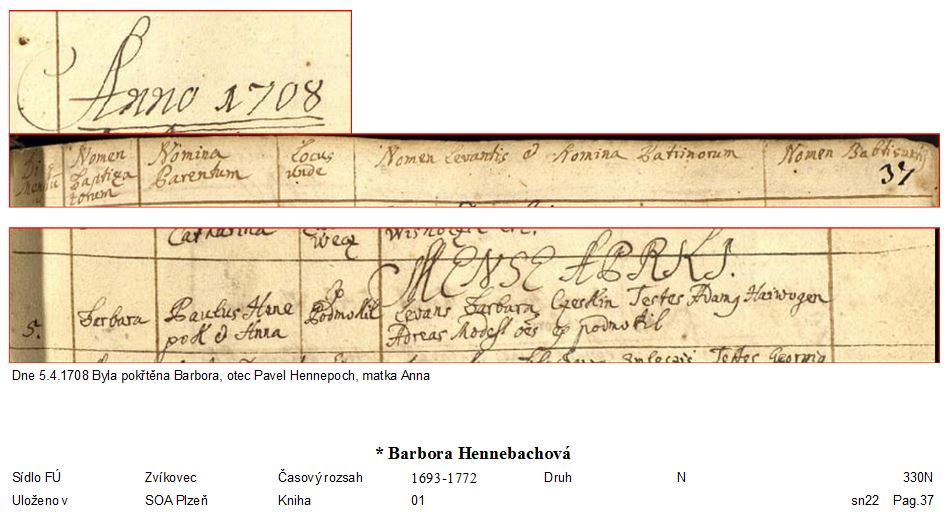 Anno 1708
Nomen Baptizatorum
Nomina Parentum
Locus unde
Nomen Levantis & Nomina Patrinorum
Nomen Babtisantis
37
Catharina
MENSE APRILI.
5.
Barbara
Paulus Hane
pok & Anna
Podmokil
Levans Barbara Czeskin Testes Adam
podmokil
Testes Georgiq
Dne 5.4.1708 Byla pokřtěna Barbora, otec Pavel Hennepoch, matka Anna
* Barbora Hennebachová
Sídlo FÚ Zvíkovec Časový rozsah 1693-1772 Druh N 330N
Uloženo v SOA Plzeň Kniha 01 sn22 Pag.37